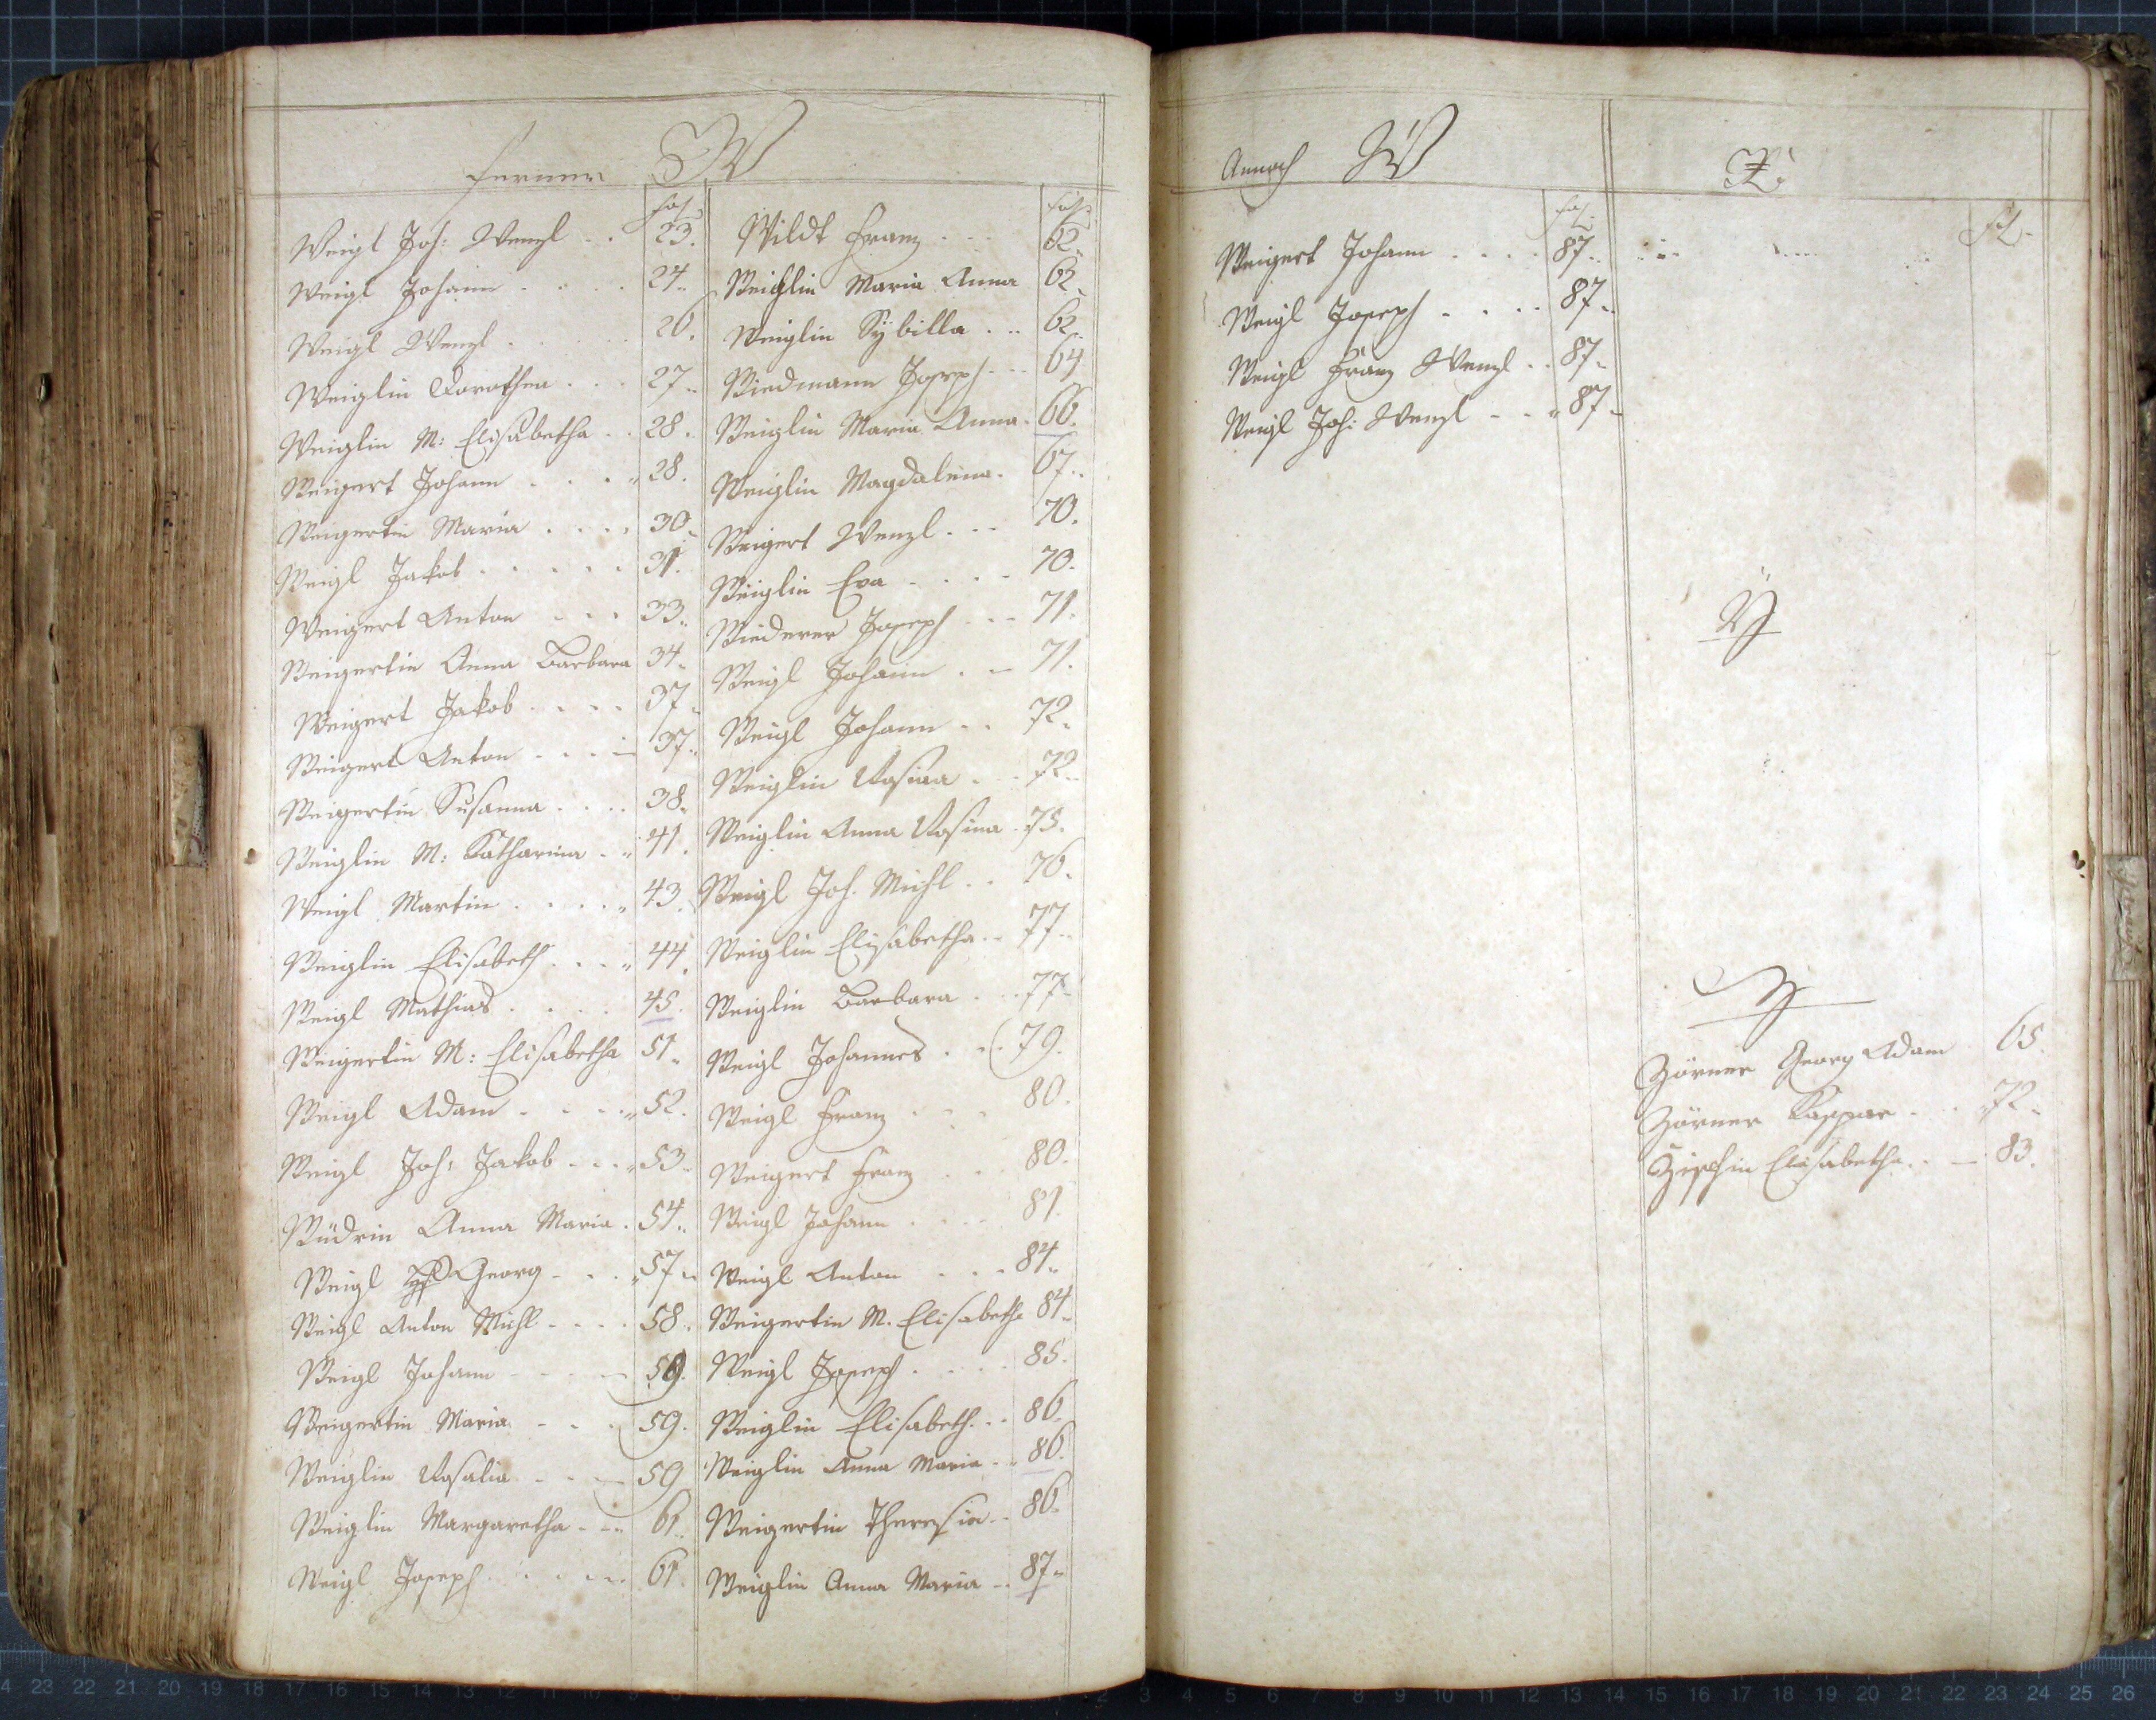 ferner W
fol.
Weigl Joh: Wenzl . . 23.
Weigl Johann . . . . 24.
Weigl Wenzl . . . . . 26.
Weiglin Dorothea . . . 27.
Weiglin M: Elisabetha . . 28.
Weigert Johann . . . . 28.
Weigertin Maria . . . . 30.
Weigl Jakob . . . . . . 31.
Weigert Anton . . . 33.
Weigertin Anna Barbara 34.
Weigert Jakob . . . . 37.
Weigert Anton . . . . 37.
Weigertin Susanna . . . . 38.
Weiglin M: Katharina . . 41.
Weigl Martin . . . . . 43.
Weiglin Elisabeth . . . . 44.
Weigl Mathias . . . . 45.
Weigertin M: Elisabetha 51.
Weigl Adam . . . . . 52.
Weigl Joh: Jakob . . . . 53.
Anna Maria . 54.
Weigl Georg . . . . 57.
Weigl Anton Michl . . . . 58.
Weigl Johann . . . . 59.
Weigertin Maria . . . . 59.
Weiglin Rosalia . . . . 59
Weiglin Margaretha . . . 61.
Weigl Joseph . . . . . . 61.
fol.
Wildt Franz . . . 62.
Weiglin Maria Anna 62.
Weiglin Sybilla . . . 62.
Wiedmann Joseph . . . 64
Weiglin Maria Anna . 66.
Weiglin Magdalena . 67.
Weigert Wenzl . . . 70.
Weiglin Eva . . . . 70.
Wiederer Joseph . . . 71.
Weigl Johann . . 71.
Weigl Johann . . 72.
Weiglin Rosina . . . 72.
Weiglin Anna Rosina . 75.
Weigl Joh. Michl . . 76.
Weiglin Elisabetha . . 77.
Weiglin Barbara . . . 77.
Weigl Johannes . . . 79.
Weigl Franz . . . 80.
Weigert Franz . . . 80.
Weigl Johann . . . . 81.
Weigl Anton . . . . 84.
Weigertin M. Elisabetha 84.
Weigl Joseph . . . . . 85.
Weiglin Elisabeth . . . 86.
Weiglin Anna Maria . . 86.
Weigertin Theresia . . 86.
Weiglin Anna Maria . . 87.
Annoch W
fol.
Weigert Johann . . . . 87.
Weigl Joseph . . . . 87.
Weigl Franz Wenzl . . 87.
Weigl Joh: Wenzl . . . 87.
X.
fol.
Y
Z
Zörner Georg Adam 65.
Zörner Kaspar . . . 72.
Elisabetha . . 83.